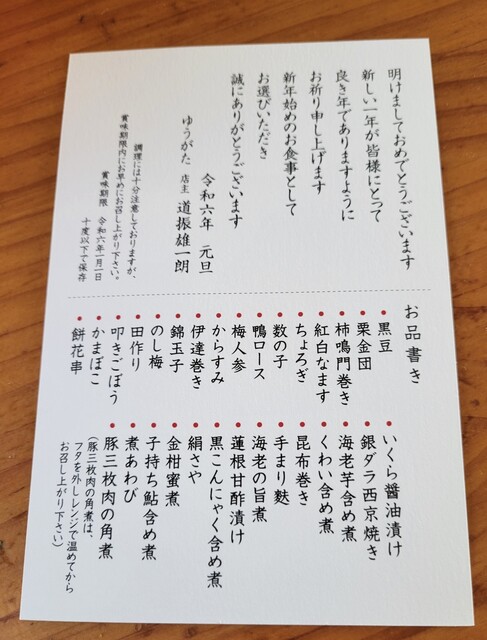 明けましておめでとうございます
新しい一年が皆様にとって
良き年でありますように
お祈り申し上げます
新年始めのお食事として
お選びいただき
誠にありがとうございます
令和六年 元旦
ゆうがた 店主 道振雄一朗
調理には十分注意しておりますが、
賞味期限内にお早めにお召し上がり下さい。
賞味期限 令和六年一月一日
十度以下で保存
お品書き
黒豆
栗金団
柿鳴門巻き
紅白なます
ちょろぎ
数の子
鴨ロース
梅人参
からすみ
伊達巻き
錦玉子
のし梅
田作り
叩きごぼう
かまぼこ
餅花串
いくら醤油漬け
銀ダラ西京焼き
海老芋含め煮
くわい含め煮
昆布巻き
手まり麩
海老の旨煮
蓮根甘酢漬け
黒こんにゃく含め煮
絹さや
金柑蜜煮
子持ち鮎含め煮
煮あわび
豚三枚肉の角煮
(豚三枚肉の角煮は、
フタを外しレンジで温めてから
お召し上がり下さい)